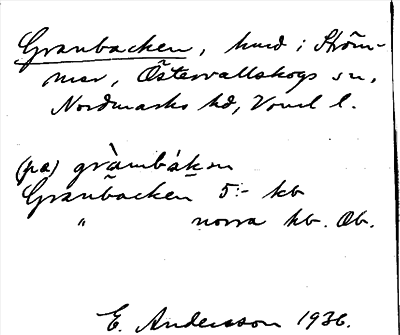 Granbacken, hmd i Ström-
mer, Östervallskogs sn,
Nordmarks hd, Vrml l.
(pa) gràmbákən
Granbacken 5:- kb
" norra kb. Ob.
E. Andersson 1936.